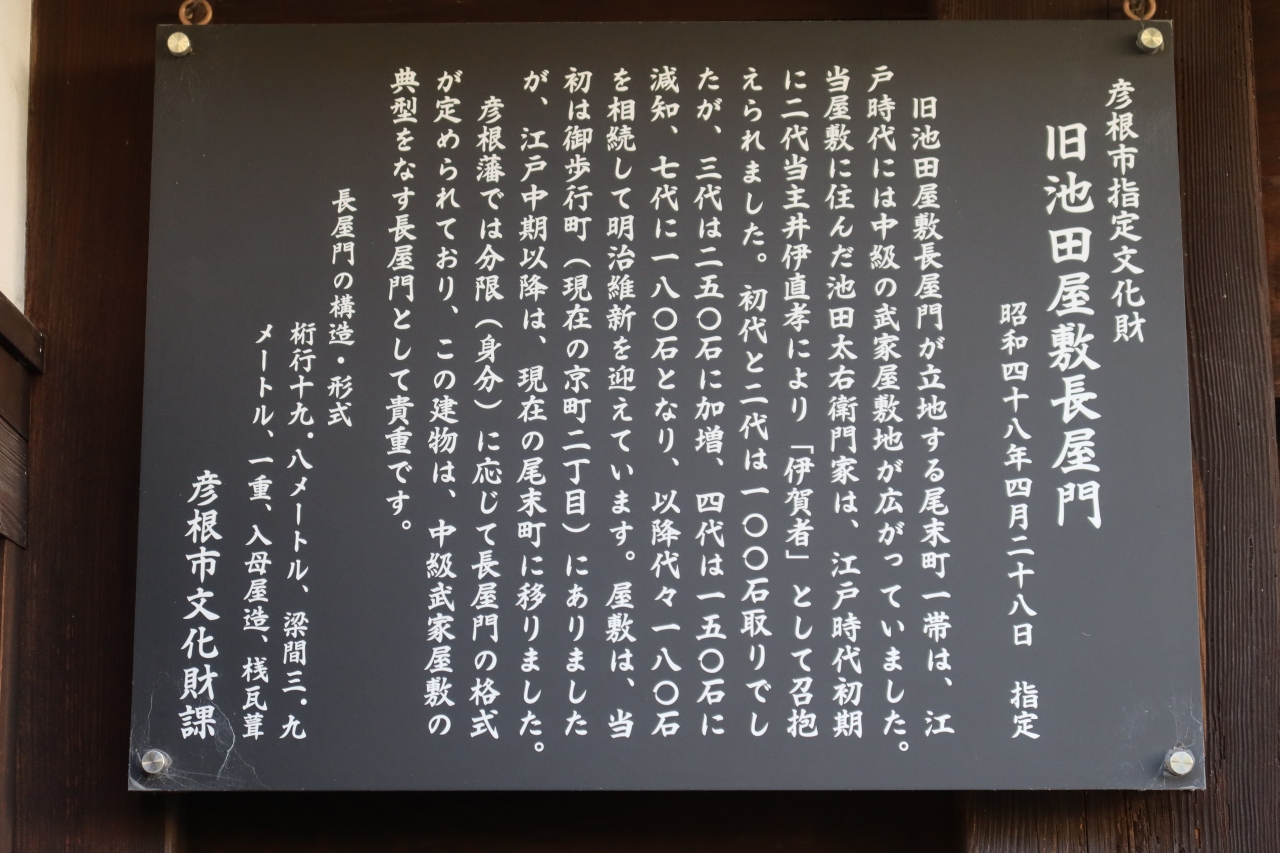 彦根市指定文化財
旧池田屋敷長屋門
昭和四十八年四月二十八日　指定
旧池田屋敷長屋門が立地する尾末町一帯は、江
戸時代には中級の武家屋敷地が広がっていました。
当屋敷に住んだ池田太右衛門家は、江戸時代初期
に二代当主井伊直孝により「伊賀者」として召抱
えられました。初代と二代は一〇〇石取りでし
たが、三代は二五〇石に加増、四代は一五〇石に
減知、七代に一八〇石となり、以降代々一八〇石
を相続して明治維新を迎えています。屋敷は、当
初は御歩行町（現在の京町二丁目）にありました
が、江戸中期以降は、現在の尾末町に移りました。
彦根藩では分限（身分）に応じて長屋門の格式
が定められており、この建物は、中級武家屋敷の
典型をなす長屋門として貴重です。
長屋門の構造・形式
桁行十九・八メートル、梁間三・九
メートル、一重、入母屋造、桟瓦葺
彦根市文化財課